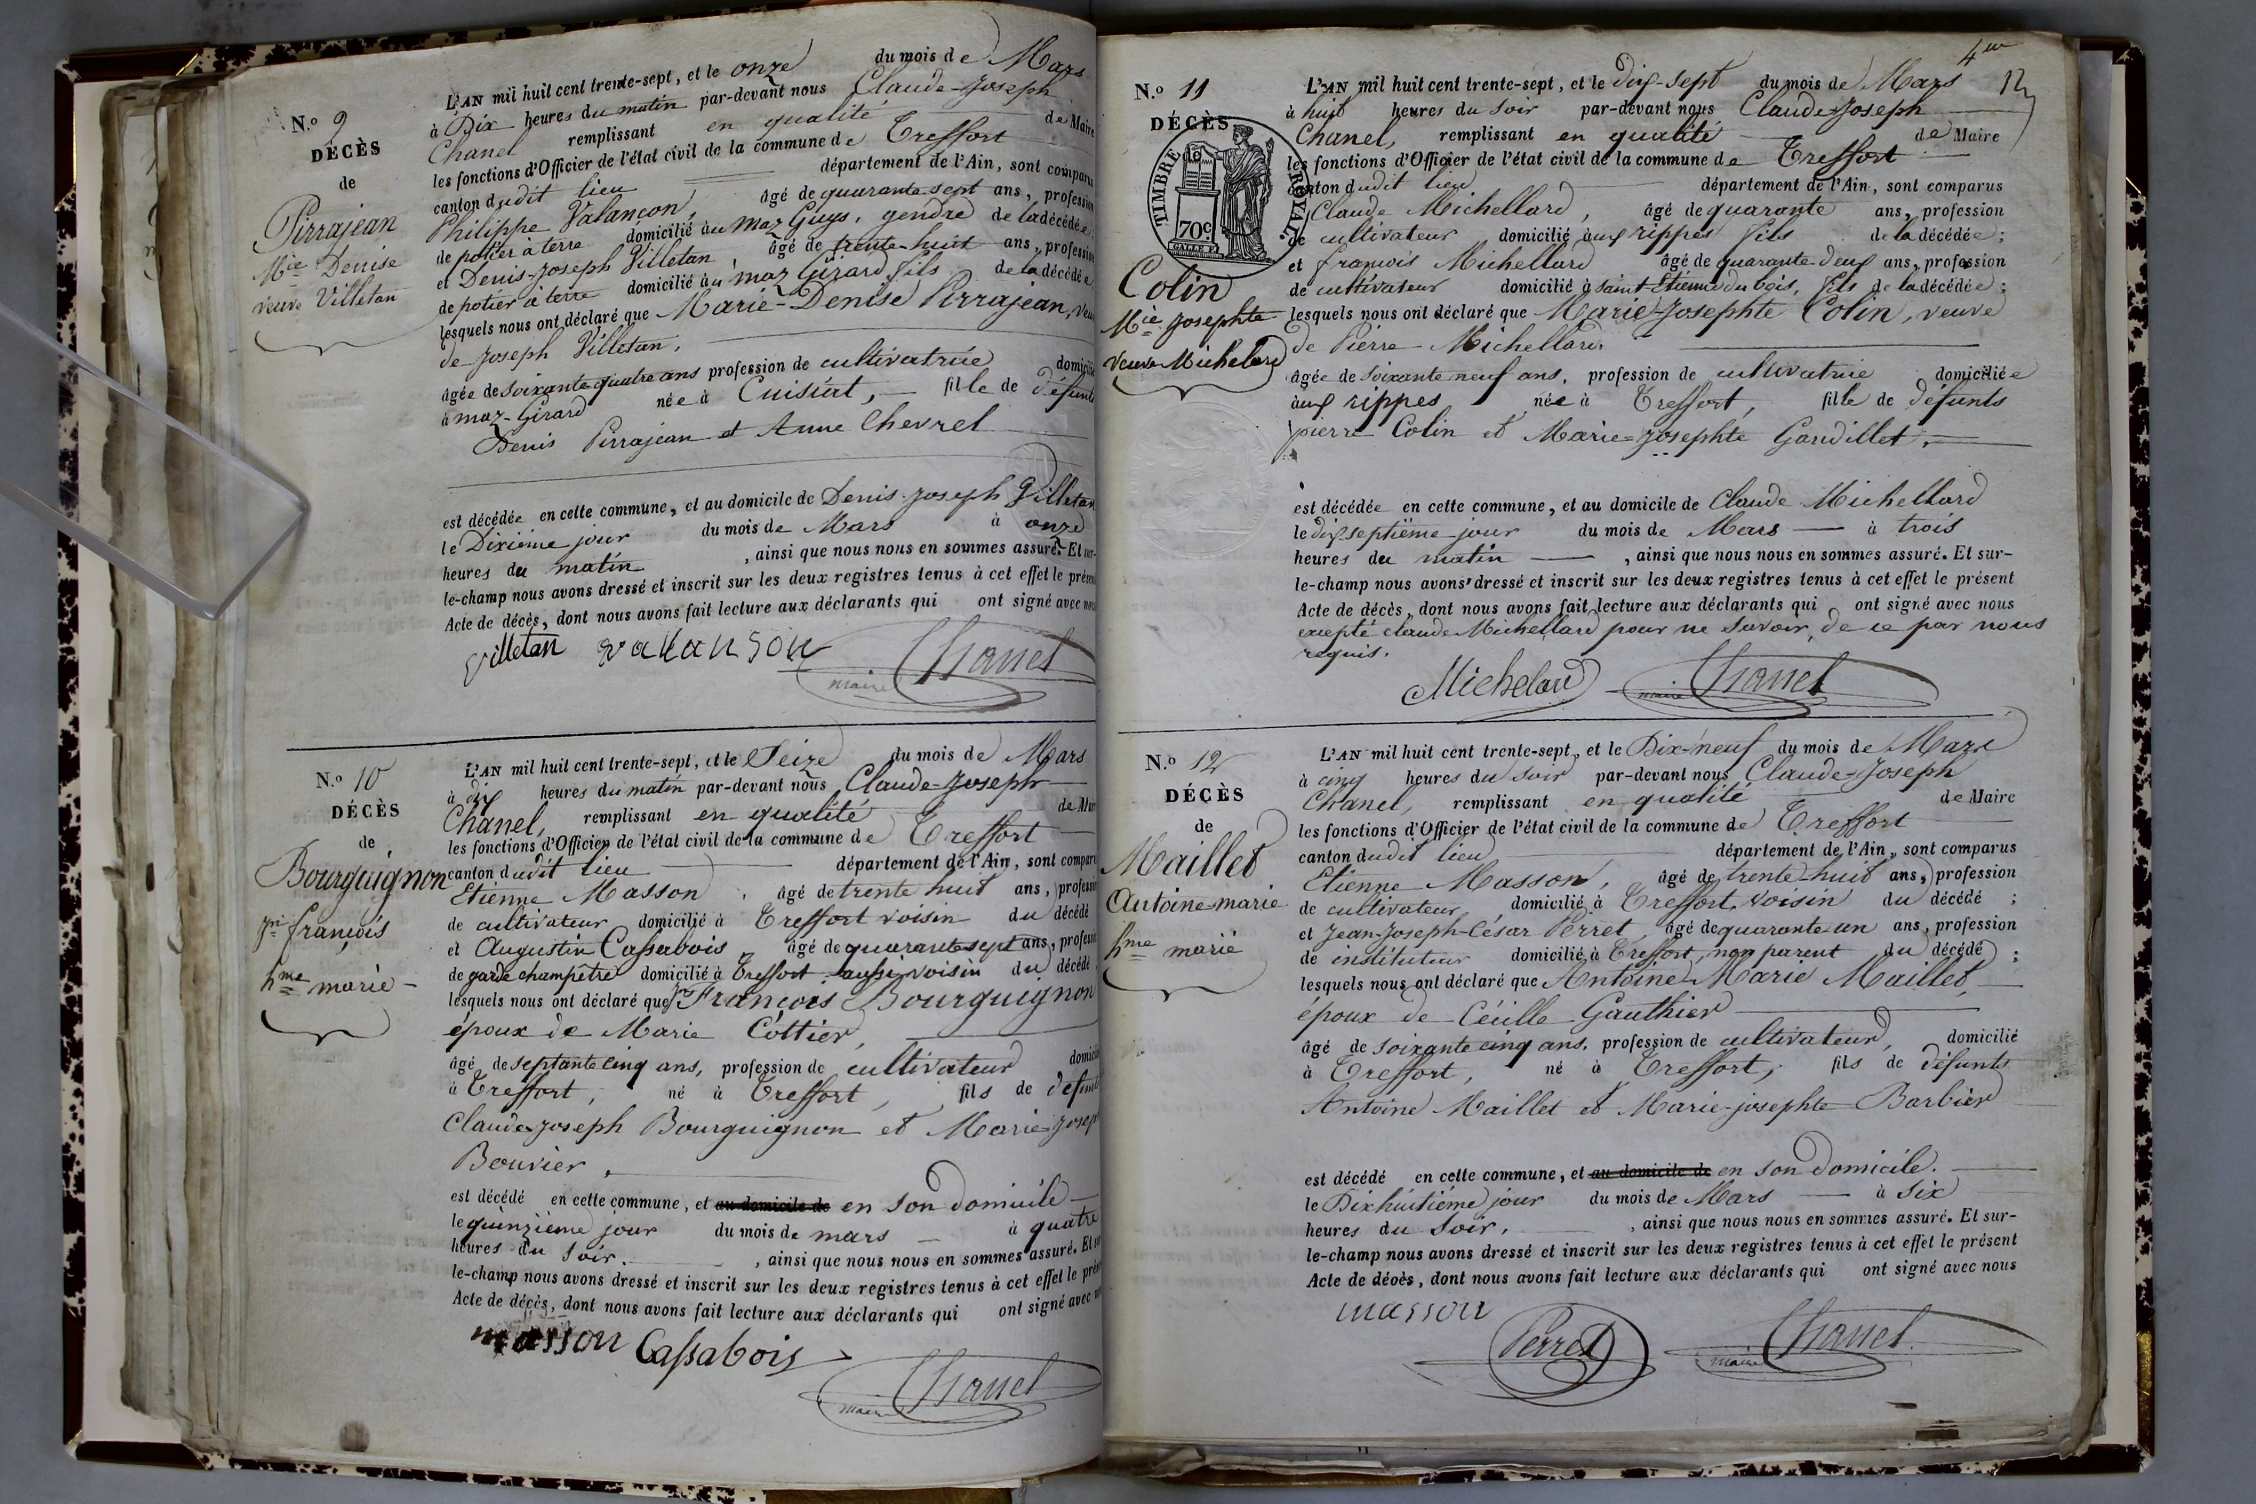 N.º 9
DÉCÈS
de
Pirrajean
Mie Denise
veuve Villetan
L'AN mil huit cent trente-sept, et le onze du mois de Mars
à Dix heures du matin par-devant nous Claude-Joseph
Chanel remplissant en qualité de Maire
les fonctions d'Officier de l'état civil de la commune de Treffort
canton dudit lieu département de l'Ain, sont comparus
Philippe Valançon, âgé de quarante sept ans, profession
de potier à terre domicilié au maz Guys, gendre de la décédée;
et Denis-Joseph Villetan, âgé de trente-huit ans, profession
de potier à terre domicilié au maz Girard fils de la décédée
lesquels nous ont déclaré que Marie-Denise Pirrajean, veuve
de Joseph Villetan,
âgée de soixante quatre ans profession de cultivatrice domiciliée
à maz-Girard née à Cuisiat, fille de défunts
Denis Pirrajean et Anne Chevrel
est décédée en cette commune, et au domicile de Denis-Joseph Villetan
le Dixième jour du mois de Mars à onze
heures du matin, ainsi que nous nous en sommes assuré. Et sur-
le-champ nous avons dressé et inscrit sur les deux registres tenus à cet effet le présent
Acte de décès, dont nous avons fait lecture aux déclarants qui ont signé avec nous
villetan valanson Chanel
maire
N.º 10
DÉCÈS
de
Bourguignon
jn françois
hme marié
L'AN mil huit cent trente-sept, et le Seize du mois de Mars
à dix heures du matin par-devant nous Claude-Joseph
Chanel, remplissant en qualité de Maire
les fonctions d'Officier de l'état civil de la commune de Treffort
canton dudit lieu département de l'Ain, sont comparus
Etienne Masson, âgé de trente huit ans, profession
de cultivateur domicilié à Treffort voisin du décédé
et Augustin Cassabois âgé de quarante sept ans, profession
de garde champêtre domicilié à Treffort aussi voisin du décédé
lesquels nous ont déclaré que jn François Bourguignon
époux de Marie Cottier,
âgé de septante cinq ans, profession de cultivateur domicilié
à Treffort, né à Treffort, fils de défunts
Claude-Joseph Bourguignon et Marie-Joseph
Bouvier,
est décédé en cette commune, et au domicile de en son domicile
le quinzième jour du mois de mars à quatre
heures du soir., ainsi que nous nous en sommes assuré. Et sur-
le-champ nous avons dressé et inscrit sur les deux registres tenus à cet effet le présent
Acte de décès, dont nous avons fait lecture aux déclarants qui ont signé avec nous
masson Cassabois Chanel
maire
4me
12
N.º 11
DÉCÈS
de
TIMBRE ROYAL.
70c
Colin
Mie Josephte
veuve Michelard
L'AN mil huit cent trente-sept, et le dix-sept du mois de Mars
à huit heures du soir par-devant nous Claude-Joseph
Chanel, remplissant en qualité de Maire
les fonctions d'Officier de l'état civil de la commune de Treffort
canton dudit lieu département de l'Ain, sont comparus
Claude Michellard, âgé de quarante ans, profession
de cultivateur domicilié aux rippes fils de la décédée;
et françois Michellard âgé de quarante deux ans, profession
de cultivateur domicilié à saint-Etienne du bois, fils de la décédée;
lesquels nous ont déclaré que Marie-Josephte Colin, veuve
de Pierre Michellard.
âgée de soixante neuf ans, profession de cultivatrice domiciliée
aux rippes née à Treffort, fille de défunts
pierre Colin et Marie-josephte Gaudillet,
est décédée en cette commune, et au domicile de Claude Michellard
le dix septième jour du mois de Mars à trois
heures du matin, ainsi que nous nous en sommes assuré. Et sur-
le-champ nous avons dressé et inscrit sur les deux registres tenus à cet effet le présent
Acte de décès, dont nous avons fait lecture aux déclarants qui ont signé avec nous
excepté claude Michellard pour ne savoir, de ce par nous
requis.
Michelard Chanel
maire
N.º 12
DÉCÈS
de
Maillet
Antoine-marie
hme marié
L'AN mil huit cent trente-sept, et le Dix-neuf du mois de Mars
à cinq heures du soir par-devant nous Claude-Joseph
Chanel, remplissant en qualité de Maire
les fonctions d'Officier de l'état civil de la commune de Treffort
canton dudit lieu département de l'Ain, sont comparus
Etienne Masson, âgé de trente-huit ans, profession
de cultivateur domicilié à Treffort, voisin du décédé;
et Jean-Joseph-César Perret, âgé de quarante un ans, profession
de instituteur domicilié à Treffort, non parent du décédé;
lesquels nous ont déclaré que Antoine-Marie Maillet,
époux de Cécille Gauthier
âgé de soixante cinq ans. profession de cultivateur, domicilié
à Treffort, né à Treffort, fils de défunts
Antoine Maillet et Marie-josephte Barbier
est décédé en cette commune, et au domicile de en son domicile.
le Dixhuitième jour du mois de Mars à six
heures du soir, , ainsi que nous nous en sommes assuré. Et sur-
le-champ nous avons dressé et inscrit sur les deux registres tenus à cet effet le présent
Acte de décès, dont nous avons fait lecture aux déclarants qui ont signé avec nous
masson
Perret Chanel
maire